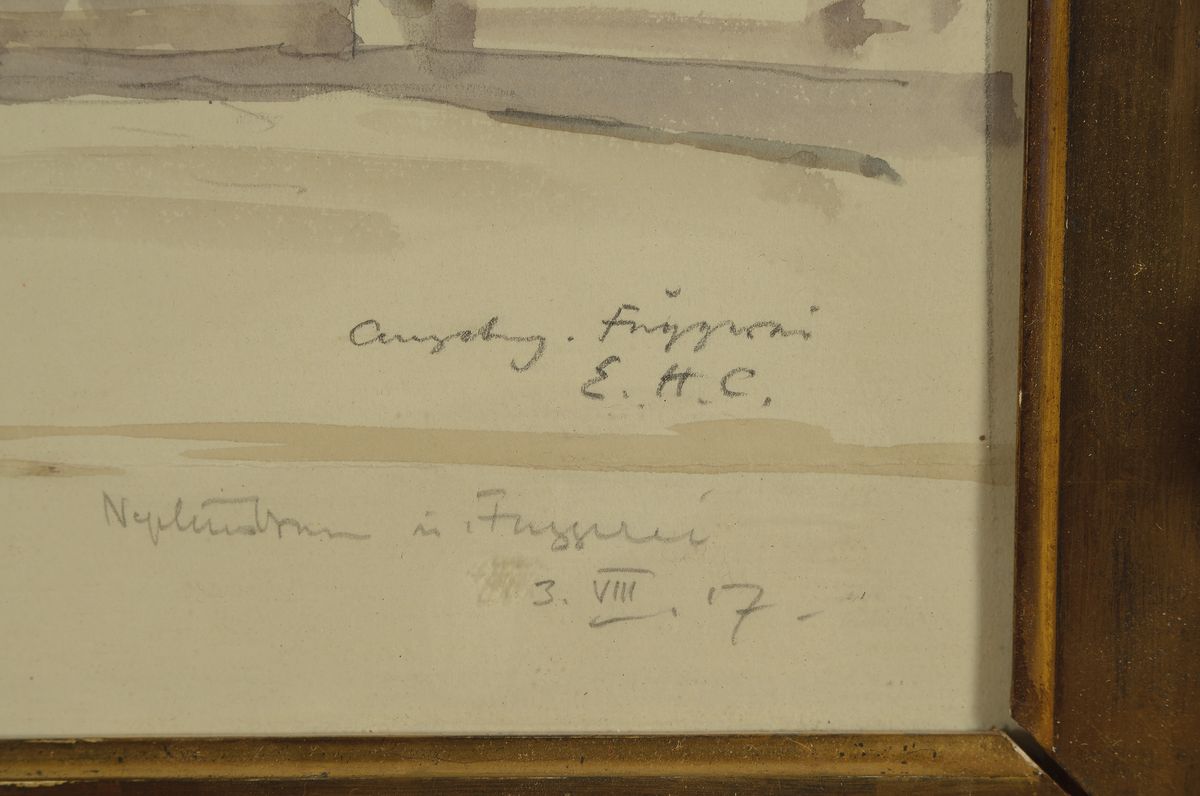 Augsbug. Fuggerei
E. H. C.
Neptunbrunn u. Fuggerei
3. VIII. 17